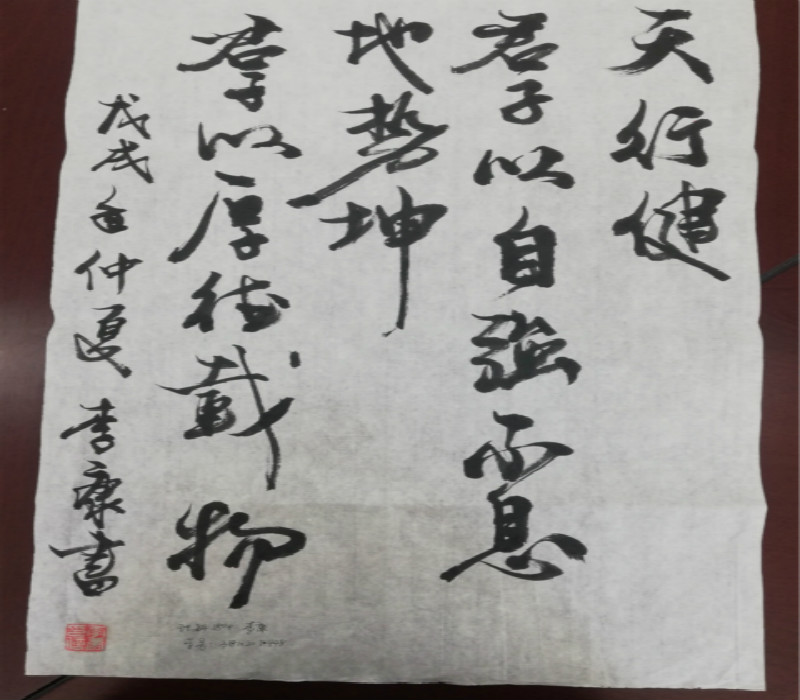 天行健
君子以自强不息
地势坤
君子以厚德载物
戊戌年仲夏 李康书